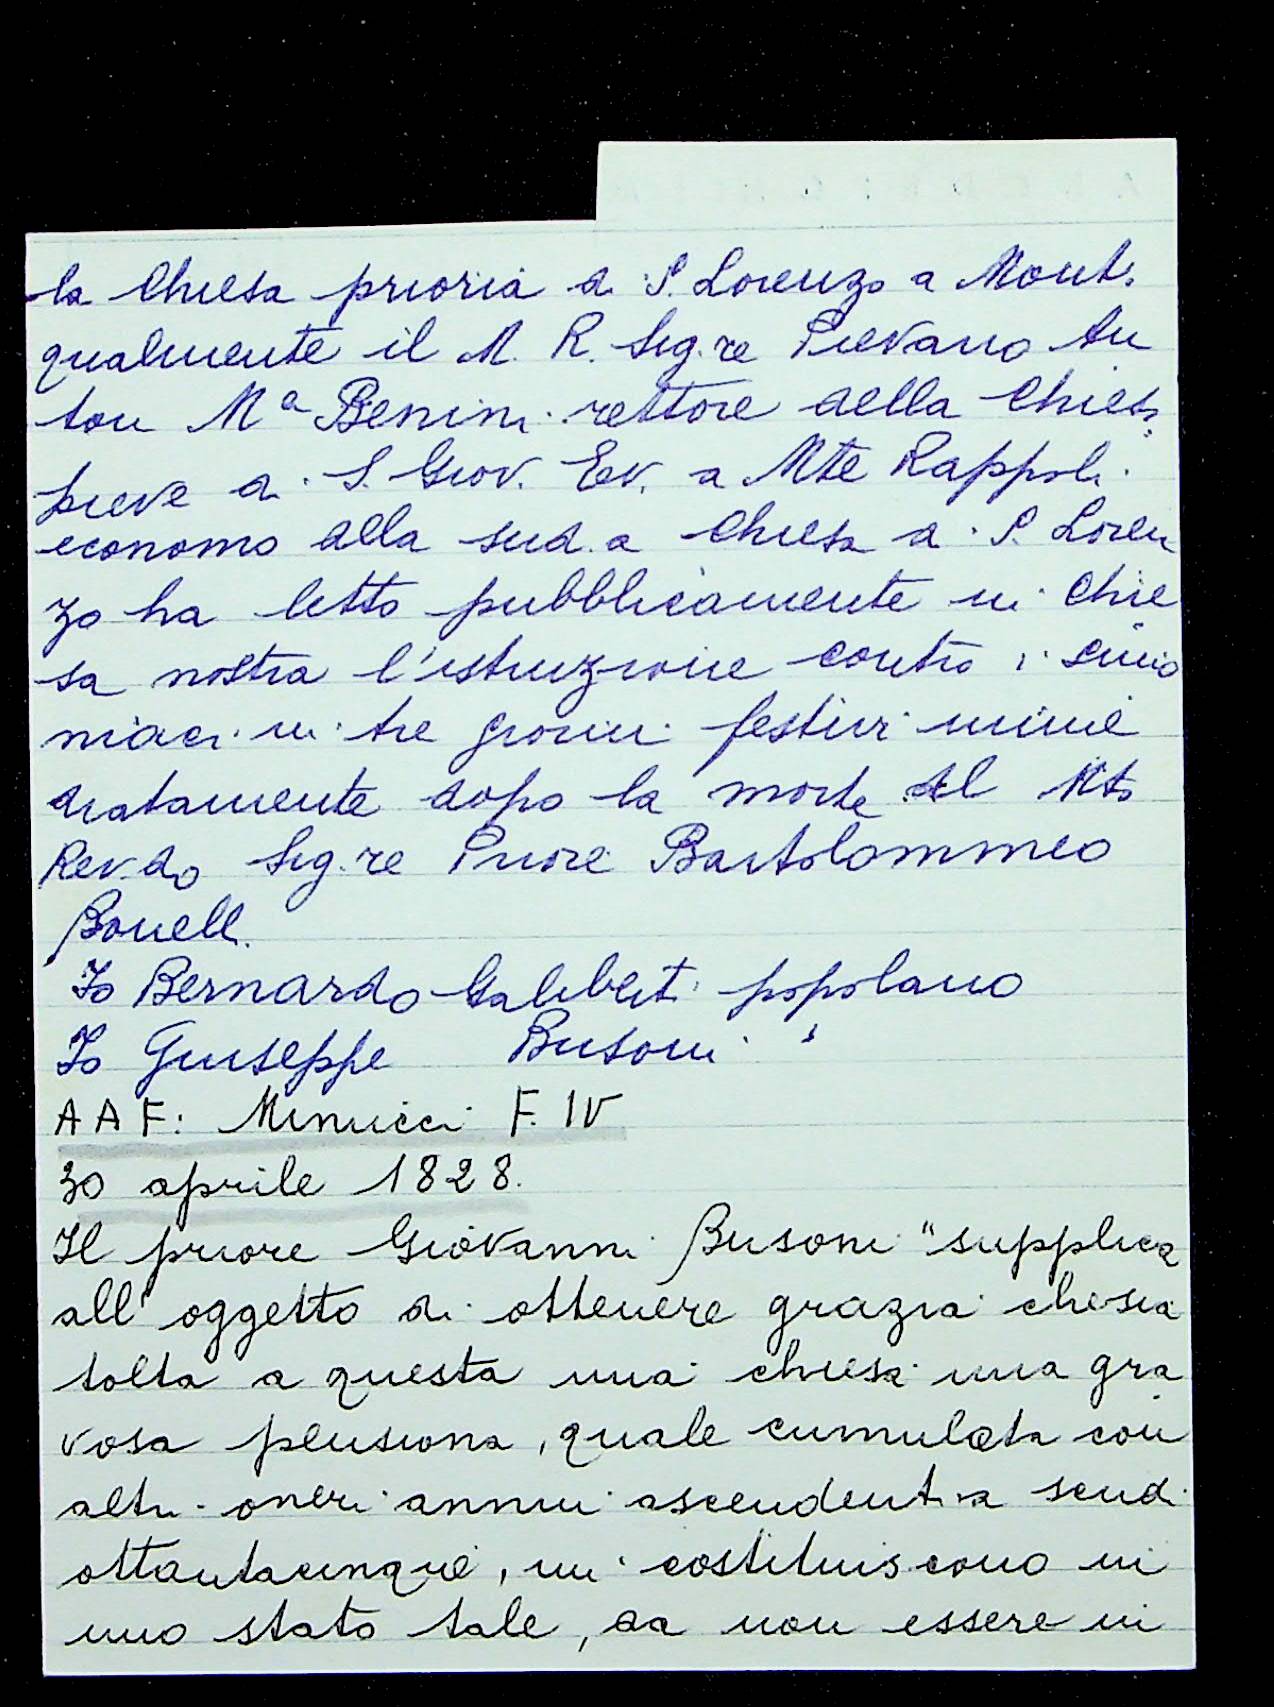 la Chiesa prioria di S. Lorenzo a Mont.
qualmente il M. R. Sig.re Pievano An
ton Mª Benini rettore della Chiesa
pieve di S. Giov. Ev. a Mte Rappoli
economo alla sud.a Chiesa di S. Loren
zo ha letto pubblicamente in Chie
sa nostra l'istruzione contro i simo
niaci in tre giorni festivi imme
diatamente dopo la morte del Mto
Rev.do Sig.re Priore Bartolommeo
Bonelli.
Io Bernardo Galiberti popolano
Io Giuseppe Busoni "
AAF: Minucci F. IV
30 aprile 1828.
Il priore Giovanni Busoni "supplica
all'oggetto di ottenere grazia che sia
tolta a questa mia chiesa una gra
vosa pensiona, quale cumulata con
altri oneri annui ascendenti a scudi
ottantacinque, mi costituiscono in
uno stato tale, da non essere in